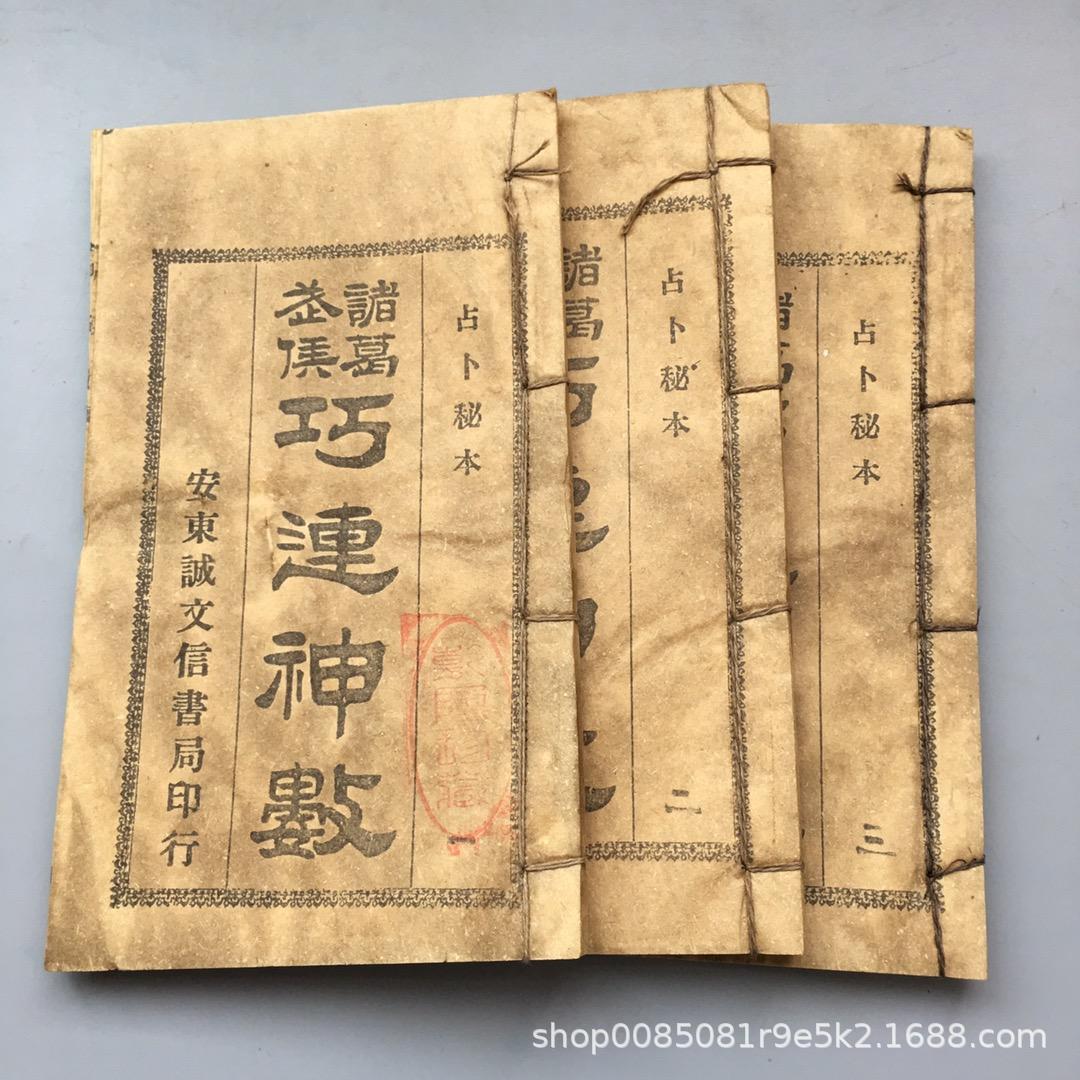 占卜秘本
一
諸葛
武侯
巧連神數
安東誠文信書局印行
占卜秘本
二
諸葛
占卜秘本
三
shop0085081r9e5k2.1688.com